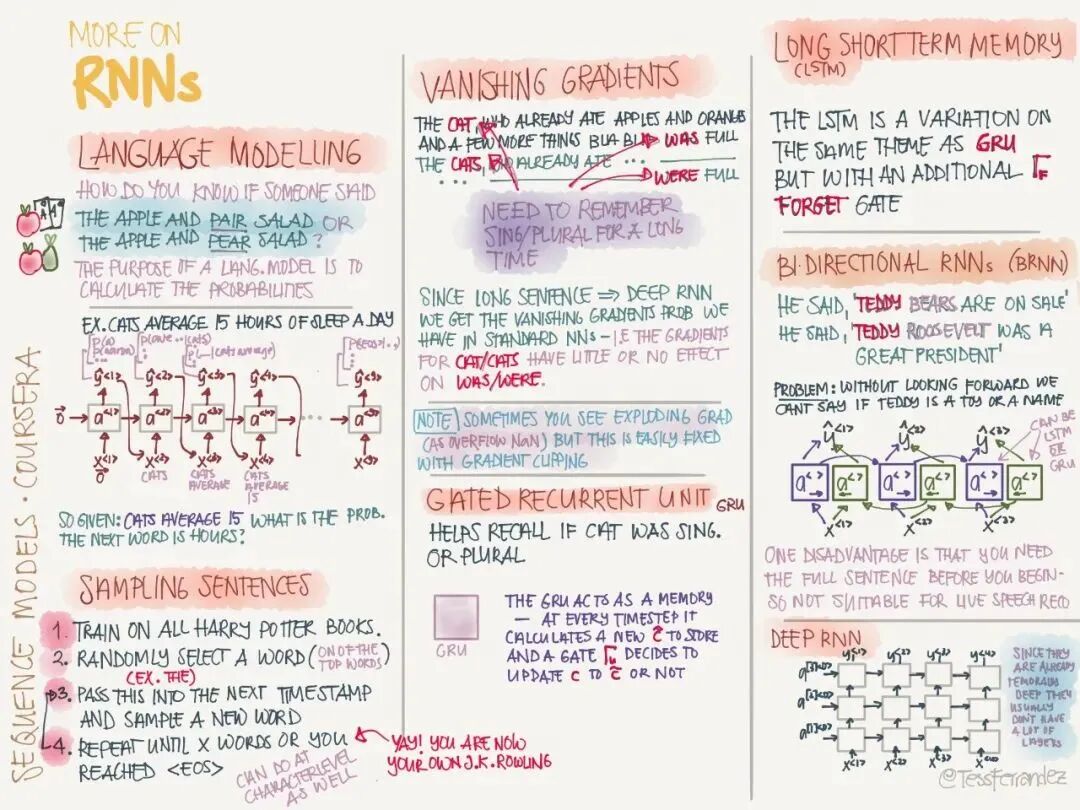 MORE ON
RNNs
SEQUENCE MODELS · COURSERA
LANGUAGE MODELLING
HOW DO YOU KNOW IF SOMEONE SAID
THE APPLE AND PAIR SALAD OR
THE APPLE AND PEAR SALAD?
THE PURPOSE OF A LANG. MODEL IS TO
CALCULATE THE PROBABILITIES
EX. CATS AVERAGE 15 HOURS OF SLEEP A DAY
ŷ<1> ŷ<2> ŷ<3> ŷ<4> ŷ<9>
0 a<1> a<2> a<3> a<4> ... a<9>
x<1> x<2> x<3> x<4> x<9>
0
CATS
CATS
AVERAGE
CATS
AVERAGE
15
SO GIVEN: CATS AVERAGE 15 WHAT IS THE PROB.
THE NEXT WORD IS HOURS?
SAMPLING SENTENCES
1. TRAIN ON ALL HARRY POTTER BOOKS.
2. RANDOMLY SELECT A WORD (ON OF THE
TOP WORDS)
(EX. THE)
3. PASS THIS INTO THE NEXT TIMESTAMP
AND SAMPLE A NEW WORD
4. REPEAT UNTIL X WORDS OR YOU
REACHED <EOS>
CAN DO AT
CHARACTERLEVEL
AS WELL
YAY! YOU ARE NOW
YOUR OWN J.K. ROWLING
VANISHING GRADIENTS
THE CAT, WHO ALREADY ATE APPLES AND ORANGES
AND A FEW MORE THINGS BLA BLA WAS FULL
THE CATS, ALREADY ATE ...
... WERE FULL
NEED TO REMEMBER
SING/PLURAL FOR A LONG
TIME
SINCE LONG SENTENCE ⇒ DEEP RNN
WE GET THE VANISHING GRADIENTS PROB WE
HAVE IN STANDARD NNs - I.E THE GRADIENTS
FOR CAT/CATS HAVE LITLE OR NO EFFECT
ON WAS/WERE.
NOTE SOMETIMES YOU SEE EXPLODING GRAD
(AS OVERFLOW NaN) BUT THIS IS EASILY FIXED
WITH GRADIENT CLIPPING
GATED RECURRENT UNIT GRU
HELPS RECALL IF CAT WAS SING.
OR PLURAL
GRU
THE GRU ACTS AS A MEMORY
— AT EVERY TIMESTEP IT
CALCULATES A NEW c̃ TO STORE
AND A GATE Γu DECIDES TO
UPDATE c TO c̃ OR NOT
LONG SHORT TERM MEMORY
(LSTM)
THE LSTM IS A VARIATION ON
THE SAME THEME AS GRU
BUT WITH AN ADDITIONAL ΓF
FORGET GATE
BI-DIRECTIONAL RNNs (BRNN)
HE SAID, 'TEDDY BEARS ARE ON SALE'
HE SAID, 'TEDDY ROOSEVELT WAS A
GREAT PRESIDENT'
PROBLEM: WITHOUT LOOKING FORWARD WE
CANT SAY IF TEDDY IS A TOY OR A NAME
ŷ<1> ŷ<2> ŷ<3>
CAN BE
LSTM
OR
GRU
a<1> a<1> a<2> a<2> a<3> a<3>
x<1> x<2> x<3>
ONE DISADVANTAGE IS THAT YOU NEED
THE FULL SENTENCE BEFORE YOU BEGIN -
SO NOT SUITABLE FOR LIVE SPEECH RECO
DEEP RNN
y<1> y<2> y<3> y<4>
a[3]<0>
a[2]<0>
a[1]<0>
x<1> x<2> x<3> x<4>
SINCE THEY
ARE ALREADY
TEMORALLY
DEEP THEY
USUALLY
DON'T HAVE
A LOT OF
LAYERS
@TessFerrandez